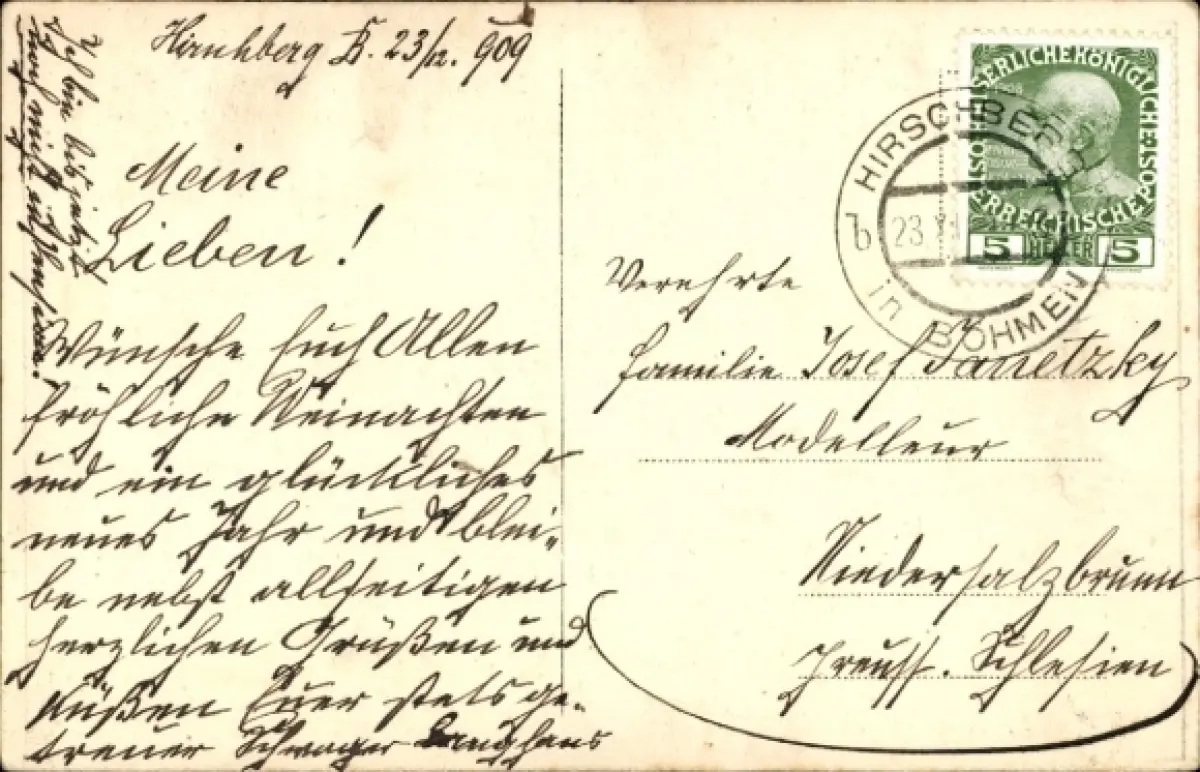 Hirschberg B. 23/12. 909
Meine
Lieben!
Wünsche Euch Allen
fröhliche Weinachten
und ein glückliches
neues Jahr und blei-
be nebst allseitigen
herzlichen Grüßen und
Küßen Euer stets ge-
treuer Schwager Langhans
Ich bin bis jetzt
noch nicht
KAISERLICHEKÖNIGLICHE
ÖSTERREICHISCHEPOST
1908
5 HELLER 5
HIRSCHBERG
b 23 XII
in BÖHMEN
Verehrte
Familie Josef Janetzky
Modelleur
Niedersalzbrunn
Preuss. Schlesien